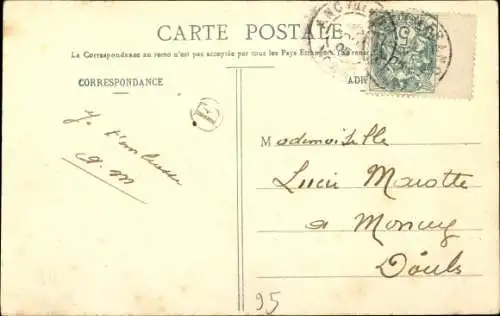 CARTE POSTALE
La Correspondance au recto n'est pas acceptée par tous les Pays Etrangers.
CORRESPONDANCE
E
Je t'embrasse
A. M
Mademoiselle
Lucie Marotte
a Moncey
Doubs
95